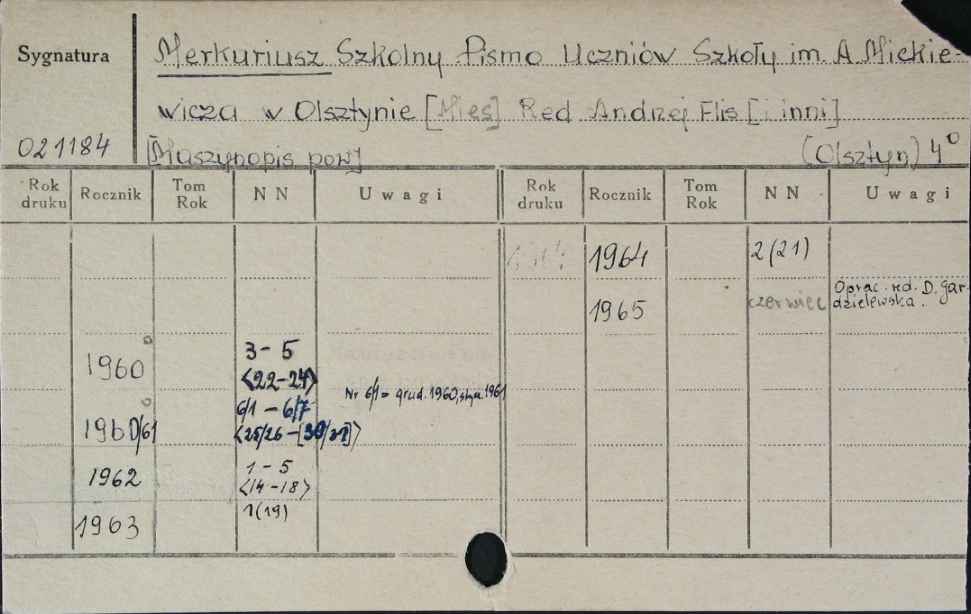 Sygnatura
Merkuriusz Szkolny Pismo Uczniów Szkoły im. A Mickie-
wicza w Olsztynie [Mies] Red Andrzej Flis [i inni]
021184 [Maszynopis pow] (Olsztyn) 4°
Rok druku Rocznik Tom Rok NN Uwagi Rok druku Rocznik Tom Rok NN Uwagi
1964 1964 2(21)
1965 czerwiec Oprac. red. D. Gar-
dzielewska.
1960 3-5
<22-24>
Nr 6/1 = grud. 1960, stycz. 1961
1960/61 6/1 - 6/7
<25/26 - [30/31]>
1962 1-5
<14-18>
1963 1(19)